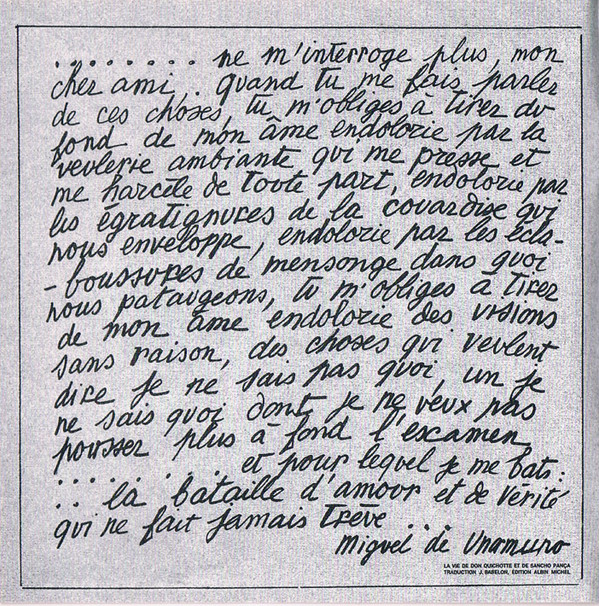 . . . . . . . . ne m'interroge plus, mon
cher ami, . quand tu me fais parler
de ces choses, tu m'obliges à tirer du
fond de mon âme endolorie par la
veulerie ambiante qui me presse et
me harcèle de toute part, endolorie par
les égratignures de la couardise qui
nous enveloppe, endolorie par les écla-
-boussures de mensonge dans quoi
nous pataugeons, tu m'obliges à tirer
de mon âme endolorie des visions
sans raison, des choses qui veulent
dire je ne sais pas quoi, un je
ne sais quoi dont je ne veux pas
pousser plus à fond l'escamen
. . . . . . . . . et pour lequel je me bats :
. . la bataille d'amour et de vérité
qui ne fait jamais trêve . . .
Miguel de Unamuno
LA VIE DE DON QUICHOTTE ET DE SANCHO PANÇA
TRADUCTION J. BABELON, ÉDITION ALBIN MICHEL